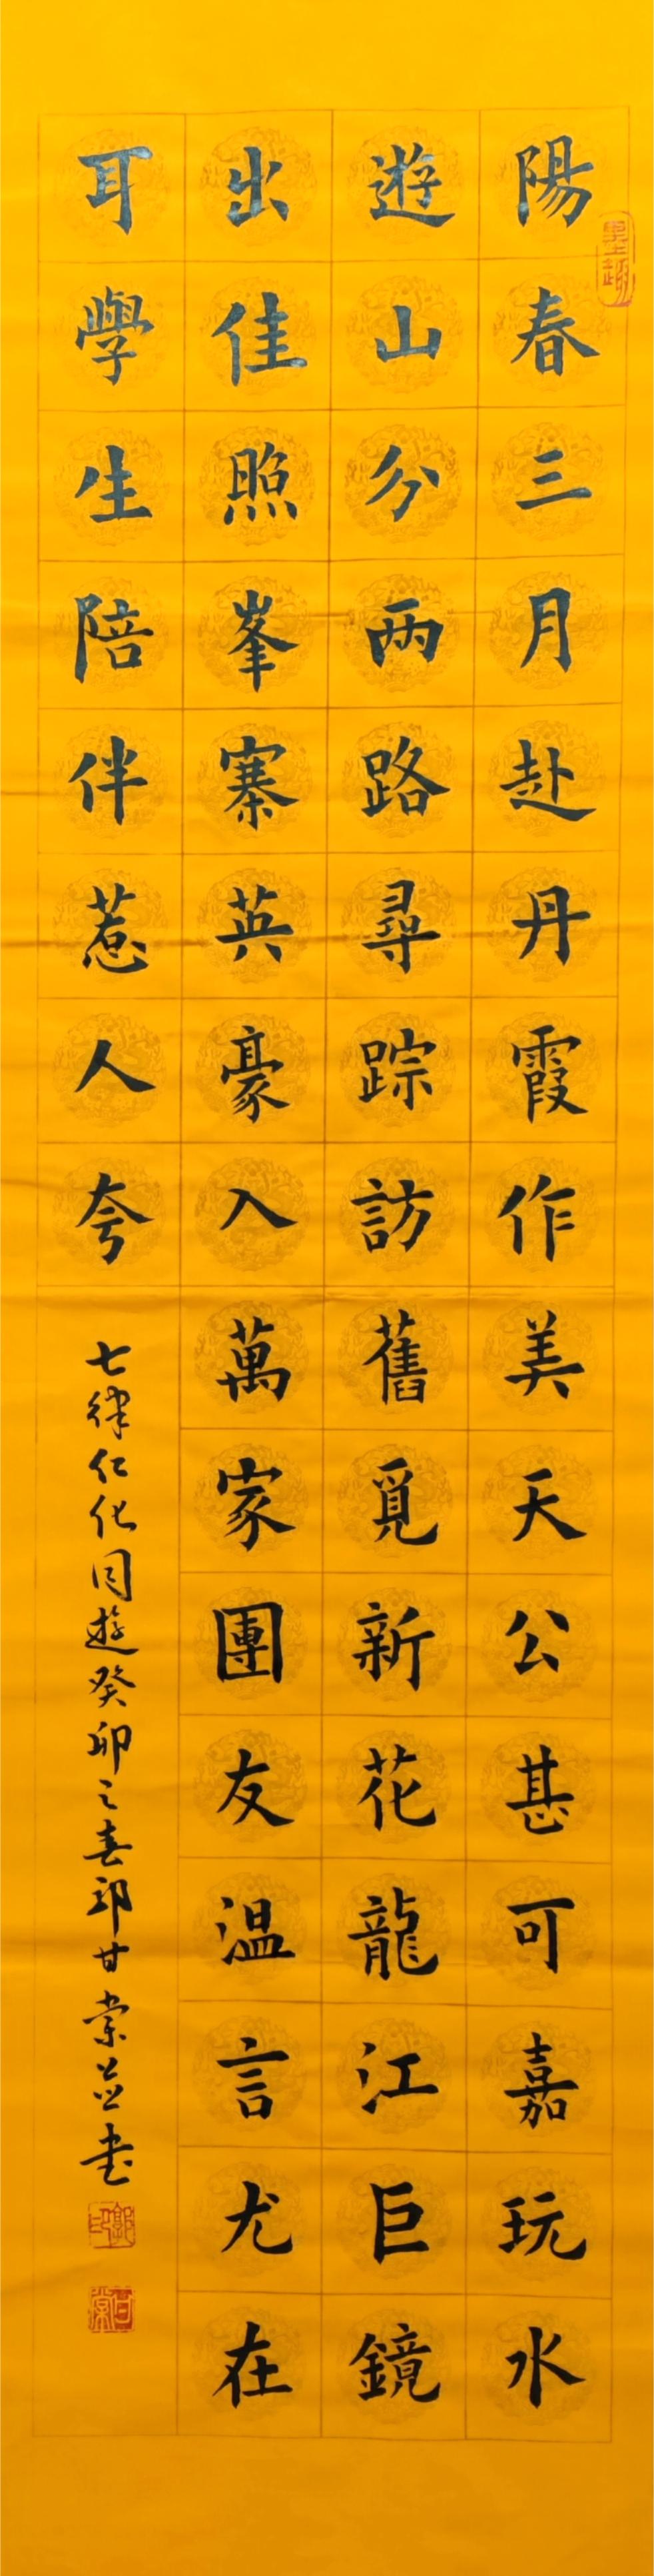 陽春三月赴丹霞作美天公甚可嘉玩水
遊山分兩路尋踪訪舊覓新花龍江巨鏡
出佳照峯寨英豪入萬家團友温言尤在
耳學生陪伴惹人夸
七律仁化同遊癸卯之春郭甘棠并書
墨趣
郭印
甘棠